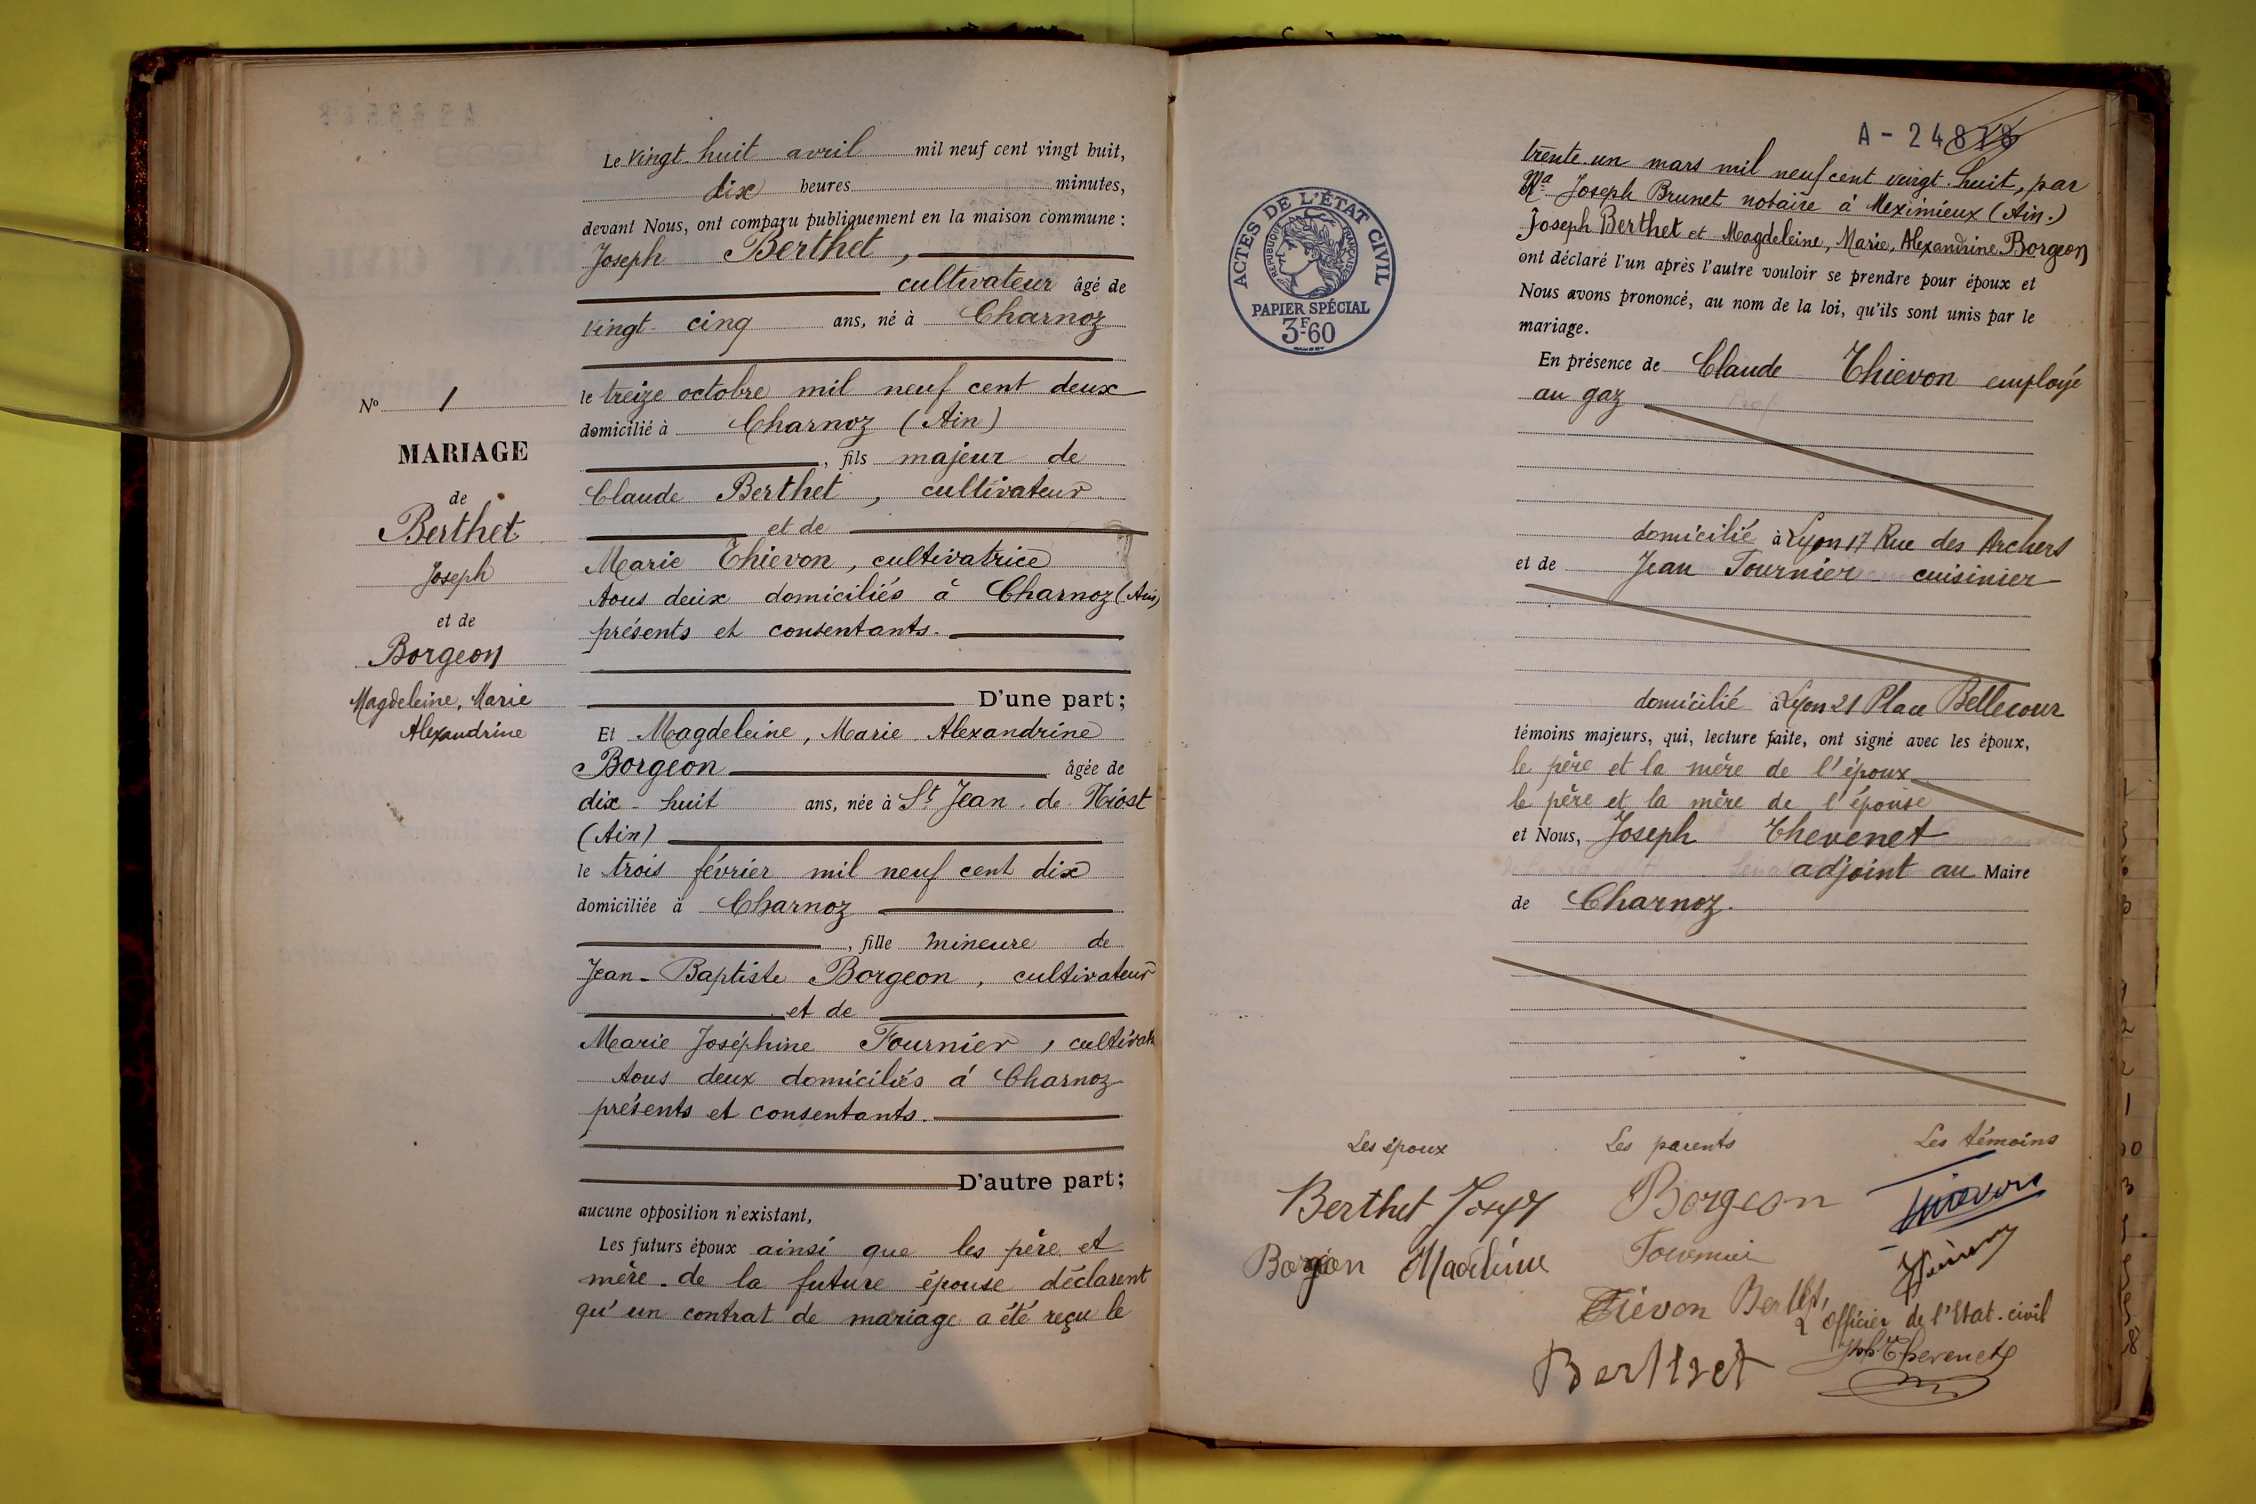 Le vingt-huit avril mil neuf cent vingt huit,
dix heures minutes,
devant Nous, ont comparu publiquement en la maison commune :
Joseph Berthet,
cultivateur âgé de
vingt-cinq ans, né à Charnoz
le treize octobre mil neuf cent deux
domicilié à Charnoz (Ain)
, fils majeur de
Claude Berthet, cultivateur
et de
Marie Thievon, cultivatrice
tous deux domiciliés à Charnoz (Ain)
présents et consentants.
D'une part ;
Et Magdeleine, Marie Alexandrine
Borgeon âgée de
dix-huit ans, née à St Jean de Niost
(Ain)
le trois février mil neuf cent dix
domiciliée à Charnoz
, fille mineure de
Jean-Baptiste Borgeon, cultivateur
et de
Marie Joséphine Fournier, cultivat
tous deux domiciliés à Charnoz
présents et consentants.
D'autre part ;
aucune opposition n'existant,
Les futurs époux ainsi que les père et
mère de la future épouse déclarent
qu'un contrat de mariage a été reçu le
No 1
MARIAGE
de
Berthet
Joseph
et de
Borgeon
Magdeleine, Marie
Alexandrine
A - 24
trente-un mars mil neuf cent vingt-huit, par
Joseph Brunet notaire à Meximieux (Ain.)
Joseph Berthet et Magdeleine, Marie, Alexandrine Borgeon
ont déclaré l'un après l'autre vouloir se prendre pour époux et
Nous avons prononcé, au nom de la loi, qu'ils sont unis par le
mariage.
En présence de Claude Thievon employé
au gaz
domicilié à Lyon 17 Rue des Archers
et de Jean Fournier cuisinier
domicilié à Lyon 21 Place Bellecour
témoins majeurs, qui, lecture faite, ont signé avec les époux,
le père et la mère de l'époux
le père et la mère de l'épouse
et Nous, Joseph Thevenet
adjoint au Maire
de Charnoz.
ACTES DE L'ÉTAT CIVIL
REPUBLIQUE FRANÇAISE
PAPIER SPÉCIAL
3F60
Les époux Les parents Les témoins
Berthet Joseph Borgeon
Borgeon Madeleine Fournier
Tièvon Berthet
L'Officier de l'Etat-civil
Berthet Thevenet